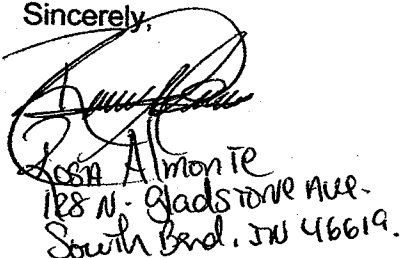 Sincerely,
Rosa Almonte
128 N. Gladstone Ave.
South Bend, IN 46619.